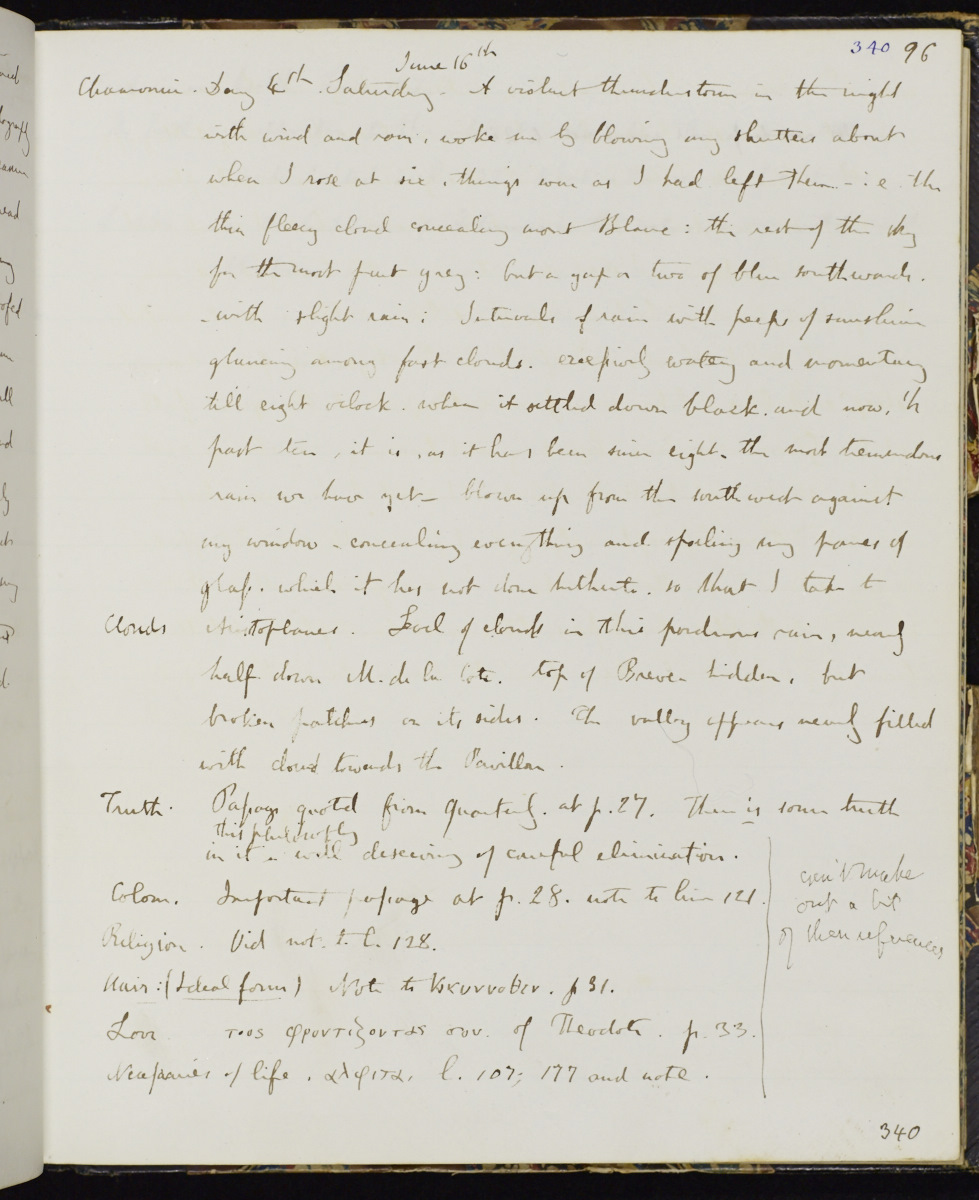 340 96
June 16th
Chamonix. Day 4th. Saturday. A violent thunderstorm in the night
with wind and rain, woke me by blowing my shutters about
when I rose at six, things were as I had left them - i e the
thin fleecy cloud concealing mont Blanc: the rest of the sky
for the most part grey: but a gap or two of blue southwards.
- with slight rain: Intervals of rain with peeps of sunshine
glancing among fast clouds. excessively watery and momentary
till eight oclock. when it settled down black. and now, 1/2
past ten, it is, as it has been since eight. the most tremendous
rain we have yet - blown up from the south west against
my window - concealing everything and spoiling my panes of
glass. which it has not done hitherto. so that I take to
Clouds Aristophanes. Level of clouds in this ponderous rain, nearly
half down M. de la Cote. top of Breven hidden, but
broken patches on its sides. The valley appears nearly filled
with cloud towards the Pavillon.
Truth. Passage quoted from Quarterly. at p.27. There is some truth
this philosophy
in it - well deserving of careful elimination.
Colour. Important passage at p. 28. note to line 121.
Religion. Vid not. to l. 128.
Hair: (Ideal form) Note to p 31.
Love φροντιζοντας συν. of Theodote. p. 33.
Necessaries of life. αλφιτα. l. 107; 177 and note.
can't make
out a bit
of these references
340